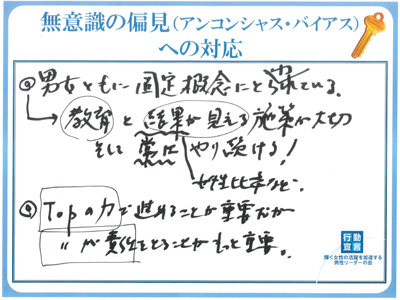 無意識の偏見(アンコンシャス・バイアス)
への対応
◎男女ともに固定概念にとらわれている。
→教育と結果が見える施策が大切
そして常にやり続ける!
女性比率など。
◎Topの力で進めることが重要だが
〃が責任をとることがもっと重要。
行動
宣言
輝く女性の活躍を加速する
男性リーダーの会